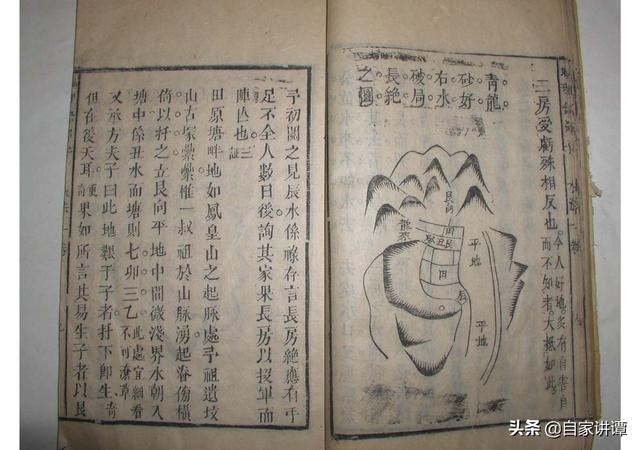 三房受虧殊相反也。今人好地多有自害自
而不知者大抵如此。
青龍
砂好
右水
破局
長絕
之圖
龍來
平地
平地
田
辰
予初閱之見辰水係祿存言長房絕應有手
足不全人數日後詢其家果長房以投軍而
陣亡也 三証
田原塘畔地如鳳皇山之起脉處予祖遺坟
山古塚纍纍惟一叔祖於山脉湧起脊傍橫
倚以扦之立艮向平地中間微淺界水朝入
塘中係丑水而塘則七卯三乙 此處宜細看不可潦草
又承方夫子曰此地艱于子者扦下即生奇
但在後天耳 更奇 果如所言其易生子者以艮
头条 @自家讲谭